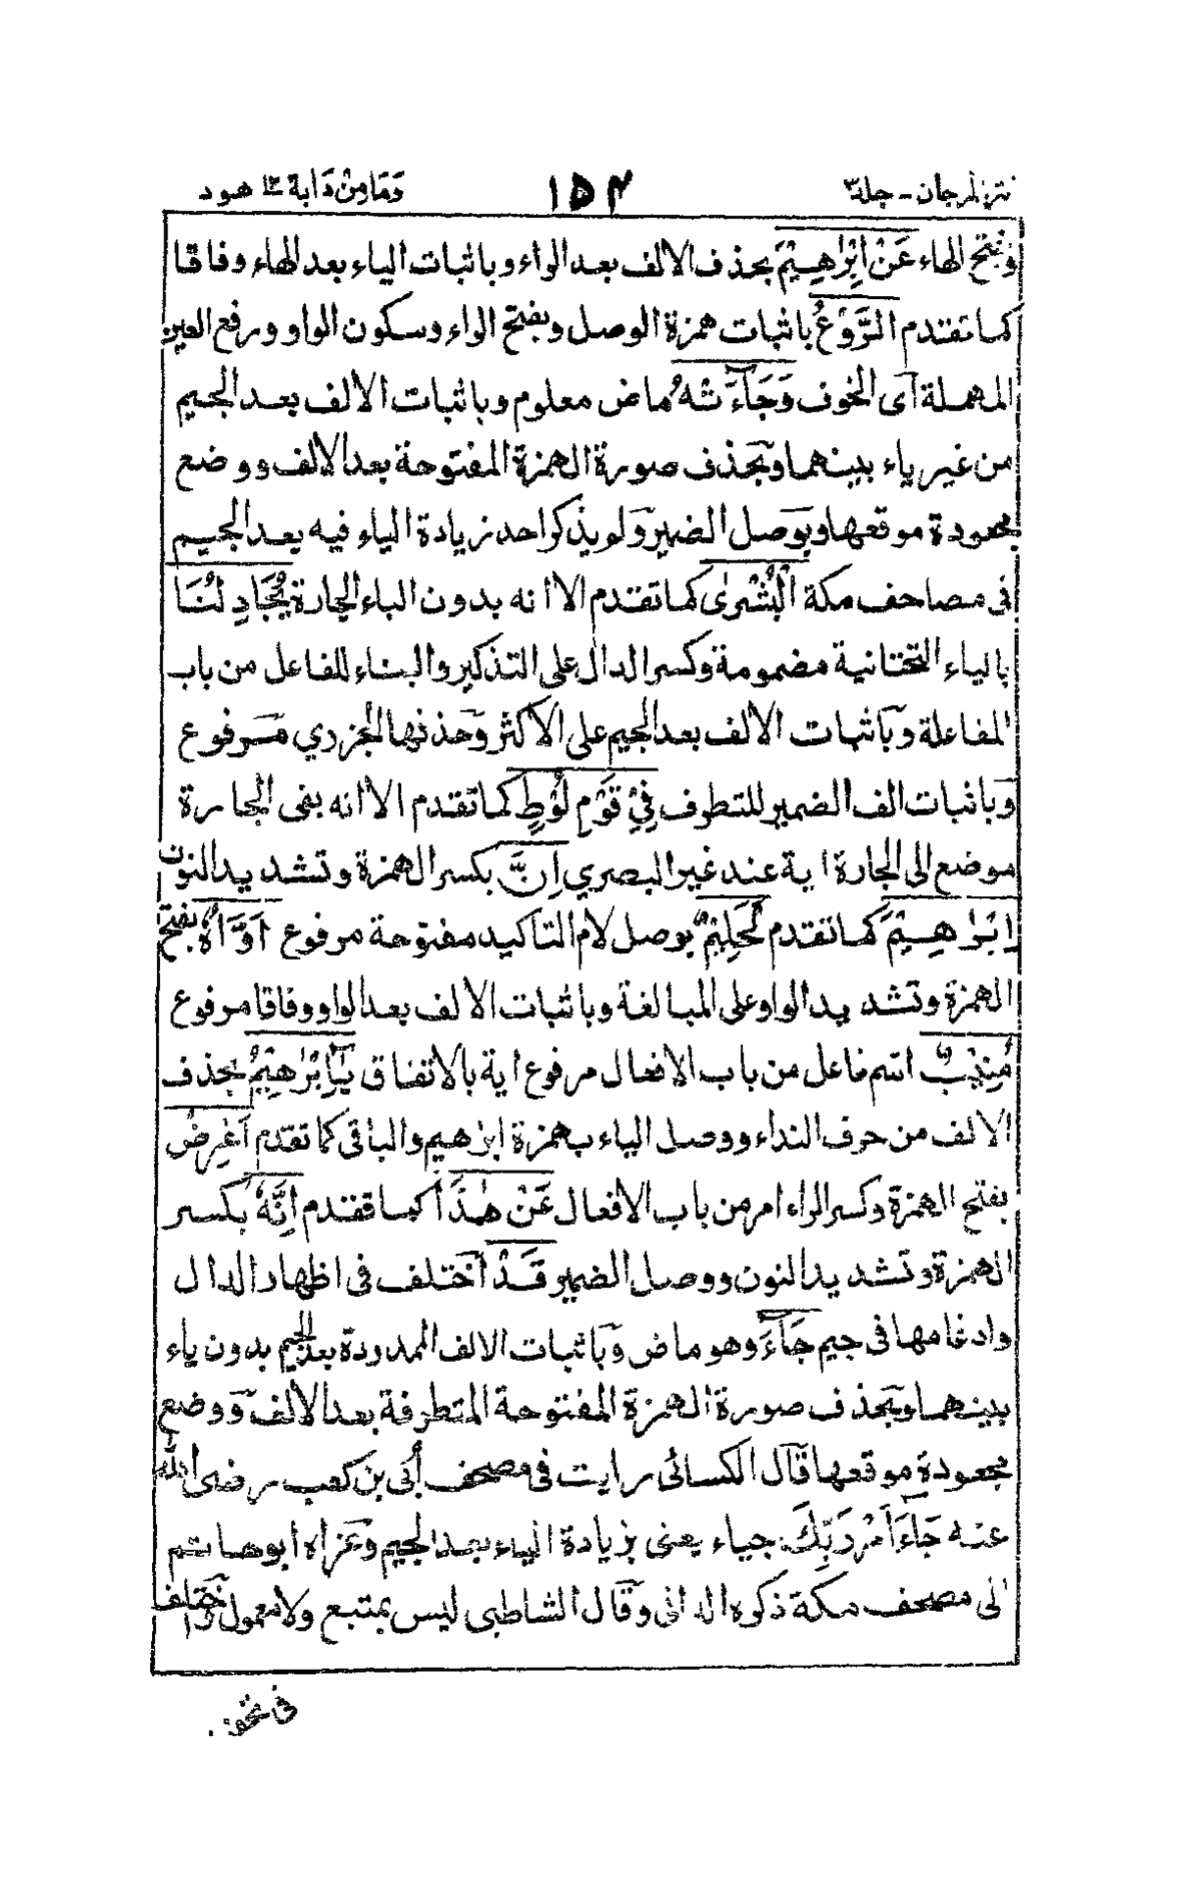 نثر المرجان - جلد٣
١٥٤
وَمَا مِنْ دَابة ١٢ هود
وبفتح الهاء عَنْ اِبْرٰهِيْمَ بحذف الالف بعد الراء وباثبات الياء بعد الهاء وفاقا
كما تقدم الرَّوْعُ باثبات همزة الوصل وبفتح الراء وسكون الواو ورفع العين
المهملة اى الخوف وَجَآءَتْهُ ماض معلوم وباثبات الالف بعد الجيم
من غير ياء بينهما وبحذف صورة الهمزة المفتوحة بعد الالف ووضع
مجعودة موقعها وبوصل الضمير ولم يذكر احد زيادة الياء فيه بعد الجيم
فى مصاحف مكة الْبُشْرٰى كما تقدم الا انه بدون الباء الجارة يُجَادِلُنَا
بالياء التحتانية مضمومة وكسر الدال على التذكير والبناء للفاعل من باب
المفاعلة وباثبات الالف بعد الجيم على الاكثر وحذفها الجزري مرفوع
وباثبات الف الضمير للتطرف فِيْ قَوْمِ لُوْطٍ كما تقدم الا انه بفى الجارة
موضع الى الجارة اية عند غير البصري اِنَّ بكسر الهمزة وتشديد النون
اِبْرٰهِيْمَ كما تقدم لَحَلِيْمٌ بوصل لام التاكيد مفتوحة مرفوع اَوَّاهٌ بفتح
الهمزة وتشديد الواو على المبالغة وباثبات الالف بعد الواو وفاقا مرفوع
مُنِيْبٌ اسم فاعل من باب الافعال مرفوع اية بالاتفاق يٰٓاِبْرٰهِيْمُ بحذف
الالف من حرف النداء ووصل الياء بهمزة ابرهيم والباقى كما تقدم اَعْرِضْ
بفتح الهمزة وكسر الراء امر من باب الافعال عَنْ هٰذَا كما تقدم اِنَّهٗ بكسر
الهمزة وتشديد النون ووصل الضمير قَدْ اختلف فى اظهار الدال
وادغامها فى جيم جَآءَ وهو ماض وباثبات الالف الممدودة بعد الجيم بدون ياء
بينهما وبحذف صورة الهمزة المفتوحة المتطرفة بعد الالف ووضع
مجعودة موقعها قال الكسائى رايت فى مصحف اُبى بن كعب رضى الله
عنه جَآءَ اَمْرُ رَبِّكَ جياء يعنى بزيادة الياء بعد الجيم وعزاه ابو حاتم
الى مصحف مكة ذكره الدانى وقال الشاطبى ليس بمتبع ولا معمول واختلف
فى